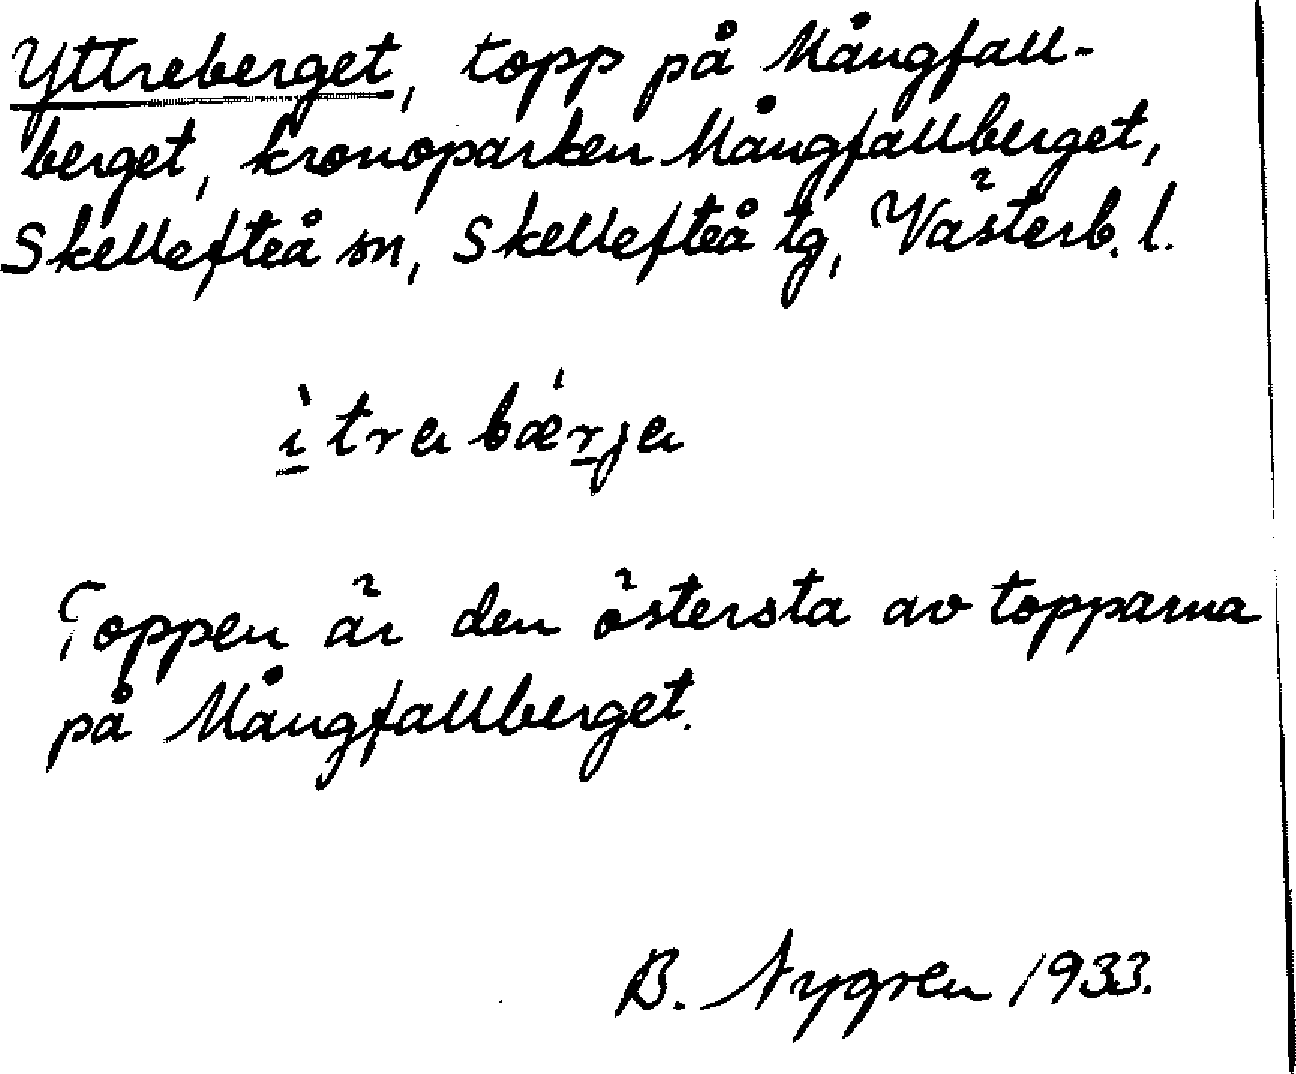 Yttreberget, topp på Mångfall-
berget, kronoparken Mångfallberget,
Skellefteå sn, Skellefteå tg, Västerb. l.
ìtrabǽrja
Toppen är den östersta av topparna
på Mångfallberget.
B. Nygren 1933.